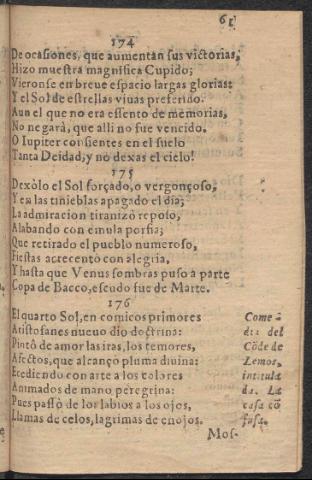 61
174
De ocasiones, que aumentan sus victorias,
Hizo muestra magnifica Cupido;
Vieronse en breue espacio largas glorias:
Y el Sol de estrellas viuas preferido.
Aun el que no era essento de memorias,
No negarà, que alli no fue vencido.
O Iupiter consientes en el suelo
Tanta Deidad, y no dexas el cielo!
175
Dexòlo el Sol forçado, o vergonçoso,
Y ea las tinieblas apagado el dia;
La admiracion tiranizò reposo,
Alabando con emula porfia;
Que retirado el pueblo numeroso,
Fiestas acrecentò con alegria,
Y hasta que Venus sombras puso à parte
Copa de Bacco, escudo fue de Marte.
176
El quarto Sol, en comicos primores
Aristofanes nueuo dio doctrina:
Pintò de amor las iras, los temores,
Afectos, que alcançò pluma diuina:
Ecediendo con arte a los colores
Animados de mano peregrina:
Pues passò de los labios a los ojos,
Llamas de celos, lagrimas de enojos.
Come
dia del
Cõde de
Lemos,
intitula
da. La
casa cõ
fusa.
Mos-